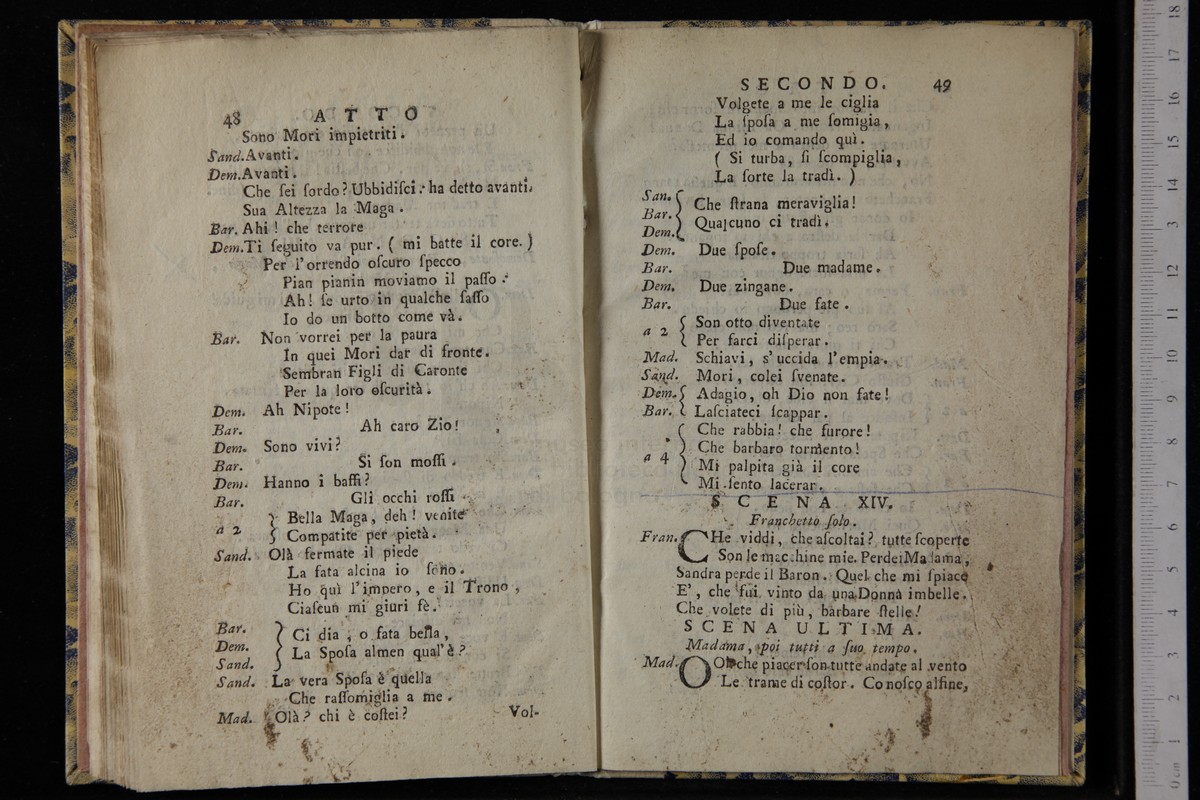 48 ATTO
Sono Mori impietriti.
Sand. Avanti.
Dem. Avanti.
Che ſei ſordo? Ubbidiſci: ha detto avanti,
Sua Altezza la Maga.
Bar. Ahi! che terrore
Dem. Ti ſeguito va pur. ( mi batte il core. )
Per l'orrendo oſcuro ſpecco
Pian pianin moviamo il paſſo:
Ah! ſe urto in qualche ſaſſo
Io do un botto come và.
Bar. Non vorrei per la paura
In quei Mori dar di fronte.
Sembran Figli di Caronte
Per la loro oſcurità.
Dem. Ah Nipote!
Bar. Ah caro Zio!
Dem. Sono vivi?
Bar. Si ſon moſſi.
Dem. Hanno i baffi?
Bar. Gli occhi roſſi
a 2 } Bella Maga, deh! venite
Compatite per pietà.
Sand. Olà fermate il piede
La fata alcina io ſono.
Ho quì l'impero, e il Trono,
Ciaſcun mi giuri fè.
Bar. Dem. Sand. } Ci dia, o fata bella,
La Spoſa almen qual'è?
Sand. La vera Spoſa è quella
Che raſſomiglia a me.
Mad. Olà? chi è coſtei?
Vol-
SECONDO. 49
Volgete a me le ciglia
La ſpoſa a me ſomigia,
Ed io comando quì.
( Si turba, ſi ſcompiglia,
La ſorte la tradì. )
San. Bar. Dem. { Che ſtrana meraviglia!
Qualcuno ci tradì.
Dem. Due ſpoſe.
Bar. Due madame.
Dem. Due zingane.
Bar. Due fate.
a 2 { Son otto diventate
Per farci diſperar.
Mad. Schiavi, s'uccida l'empia.
Sand. Mori, colei ſvenate.
Dem. { Adagio, oh Dio non fate!
Bar. { Laſciateci ſcappar.
a 4 { Che rabbia! che furore!
Che barbaro tormento!
Mi palpita già il core
Mi ſento lacerar.
SCENA XIV.
Franchetto ſolo.
Fran. CHe viddi, che aſcoltai? tutte ſcoperte
Son le macchine mie. Perdei Madama,
Sandra perde il Baron. Quel che mi ſpiace
E', che fui vinto da una Donna imbelle.
Che volete di più, barbare ſtelle!
SCENA ULTIMA.
Madama, poi tutti a ſuo tempo.
Mad. OOh che piacer ſon tutte andate al vento
Le trame di coſtor. Conoſco alfine,